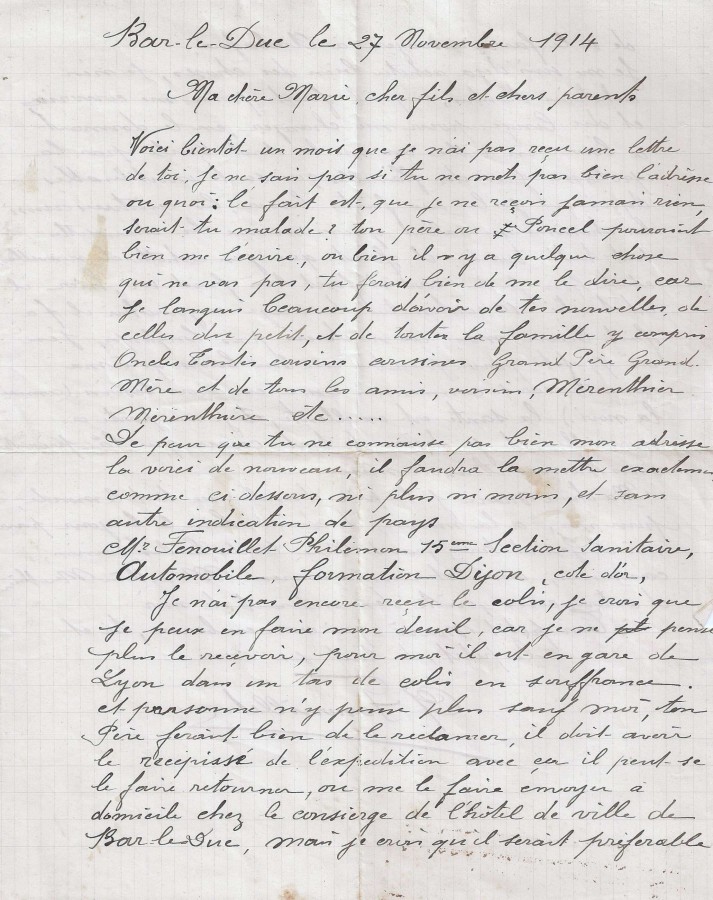 Bar-le-Duc le 27 Novembre 1914
Ma chère Marie, cher fils et chers parents
Voici bientôt un mois que je n'ai pas reçu une lettre
de toi, je ne sais pas si tu ne mets pas bien l'adresse
ou quoi: le fait est, que je ne reçois jamais rien,
serait-tu malade? ton père ou Poncel pourraint
bien me l'écrire, ou bien il n'y a quelque chose
qui ne vas pas, tu ferais bien de me le dire, car
je languis beaucoup d'avoir de tes nouvelles, de
celles du petit, et de toutes la famille y compris
Oncles Tantes cousins cousines Grand Père Grand-
Mère et de tous les amis, voisins, Mérenthier
Mérenthière etc.....
De peur que tu ne connaisse pas bien mon adresse
la voici de nouveau, il faudra la mettre exactement
comme ci dessous, ni plus ni moins, et sans
autre indication de pays
Mr Fenouillet Philémon 15ème Section Sanitaire,
Automobile, formation Dijon, cote d'or,
Je n'ai pas encore reçu le colis, je crois que
je peux en faire mon deuil, car je ne pense
plus le recevoir, pour moi il est en gare de
Lyon dans un tas de colis en souffrance.
et personne n'y pense plus sauf moi, ton
Père ferait bien de le reclamer, il doit avoir
le recépissé de l'éxpedition avec ça il peut se
le faire retourner, ou me le faire envoyer à
domicile chez le consierge de l'hôtel de ville de
Bar-le-Duc, mais je crois qu'il serait préferable